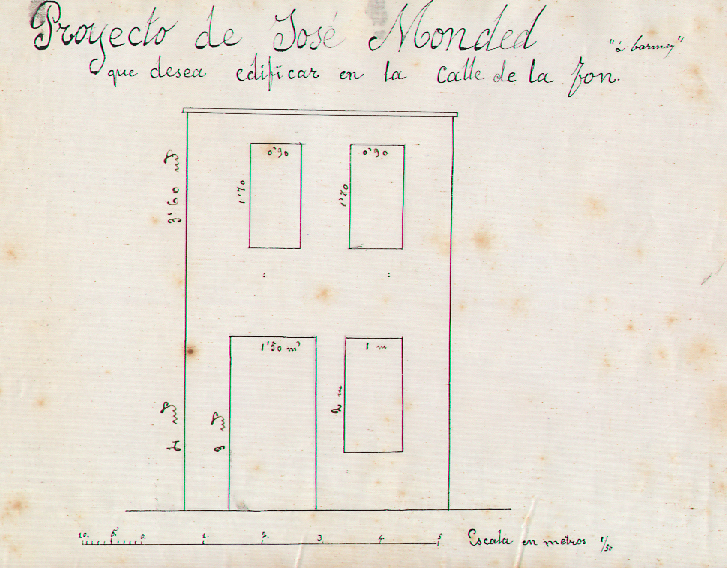 Proyecto de José Monded
que desea edificar en la Calle de la fon.
0'90
0'90
1'70
1'70
3'60 mͭ
1'50 mͭ
1 m
2 m
3 mͭ
4 mͭ
10 5 0 1 2 3 4 5
Escala en metros 1/50